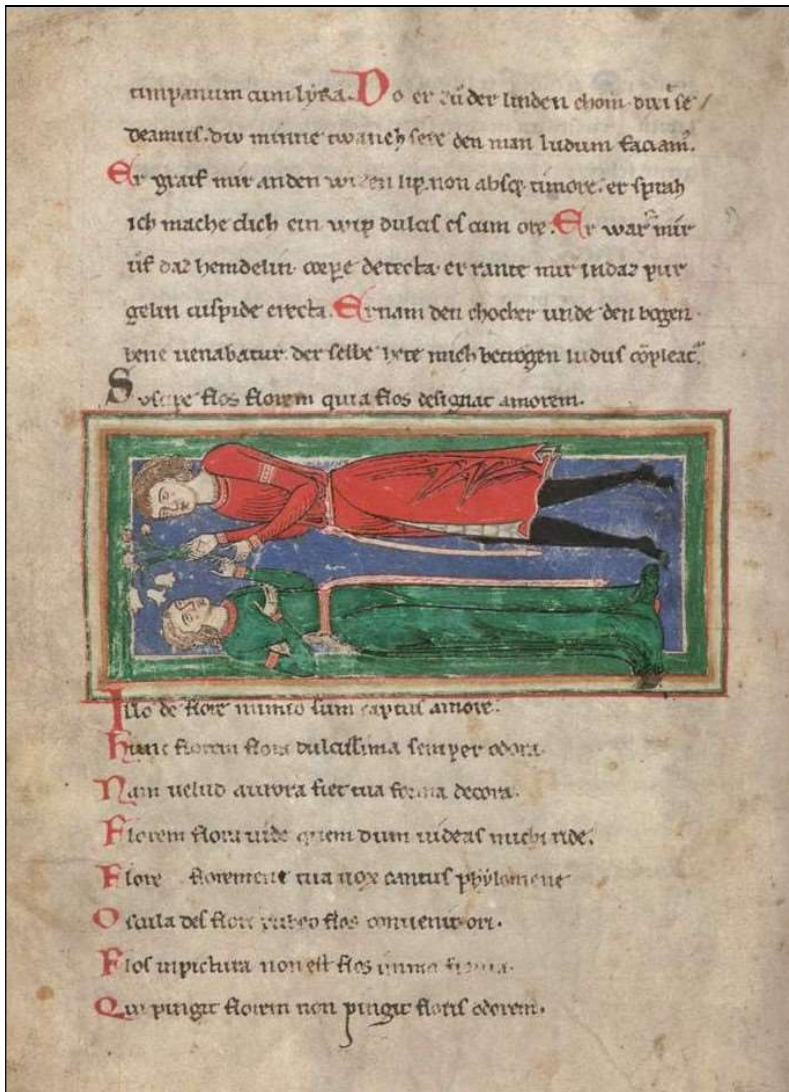 timpanum cum lyra. Do er zů der linden chom dixi se
deamus. diu minne twanch sere den man ludum faciam.
Er graif mir an den wizen lip. non absq; timore. er sprah
ich mache dich ein wip dulcis es cum ore. Er warf mir
uf daz hemdelin. corpore detecta. er rante mir in daz pur
gelin cuspide erecta. Er nam den chocher unde den bogen.
bene uenabatur. der selbe hete mich betrogen ludus cõpleat.
Suscipe flos florem quia flos designat amorem.
Illo de flore nimio sum captus amore.
hunc florem flora dulcissima semper odora.
Nam uelud aurora fiet tua forma decora.
Florem flora uide quem dum uideas michi ride.
Flore tua uox cantus phylomene
Oscula des flori rubeo flos conuenit ori.
Flos in pictura non est flos immo figura.
Qui pingit florem non pingit floris odorem.